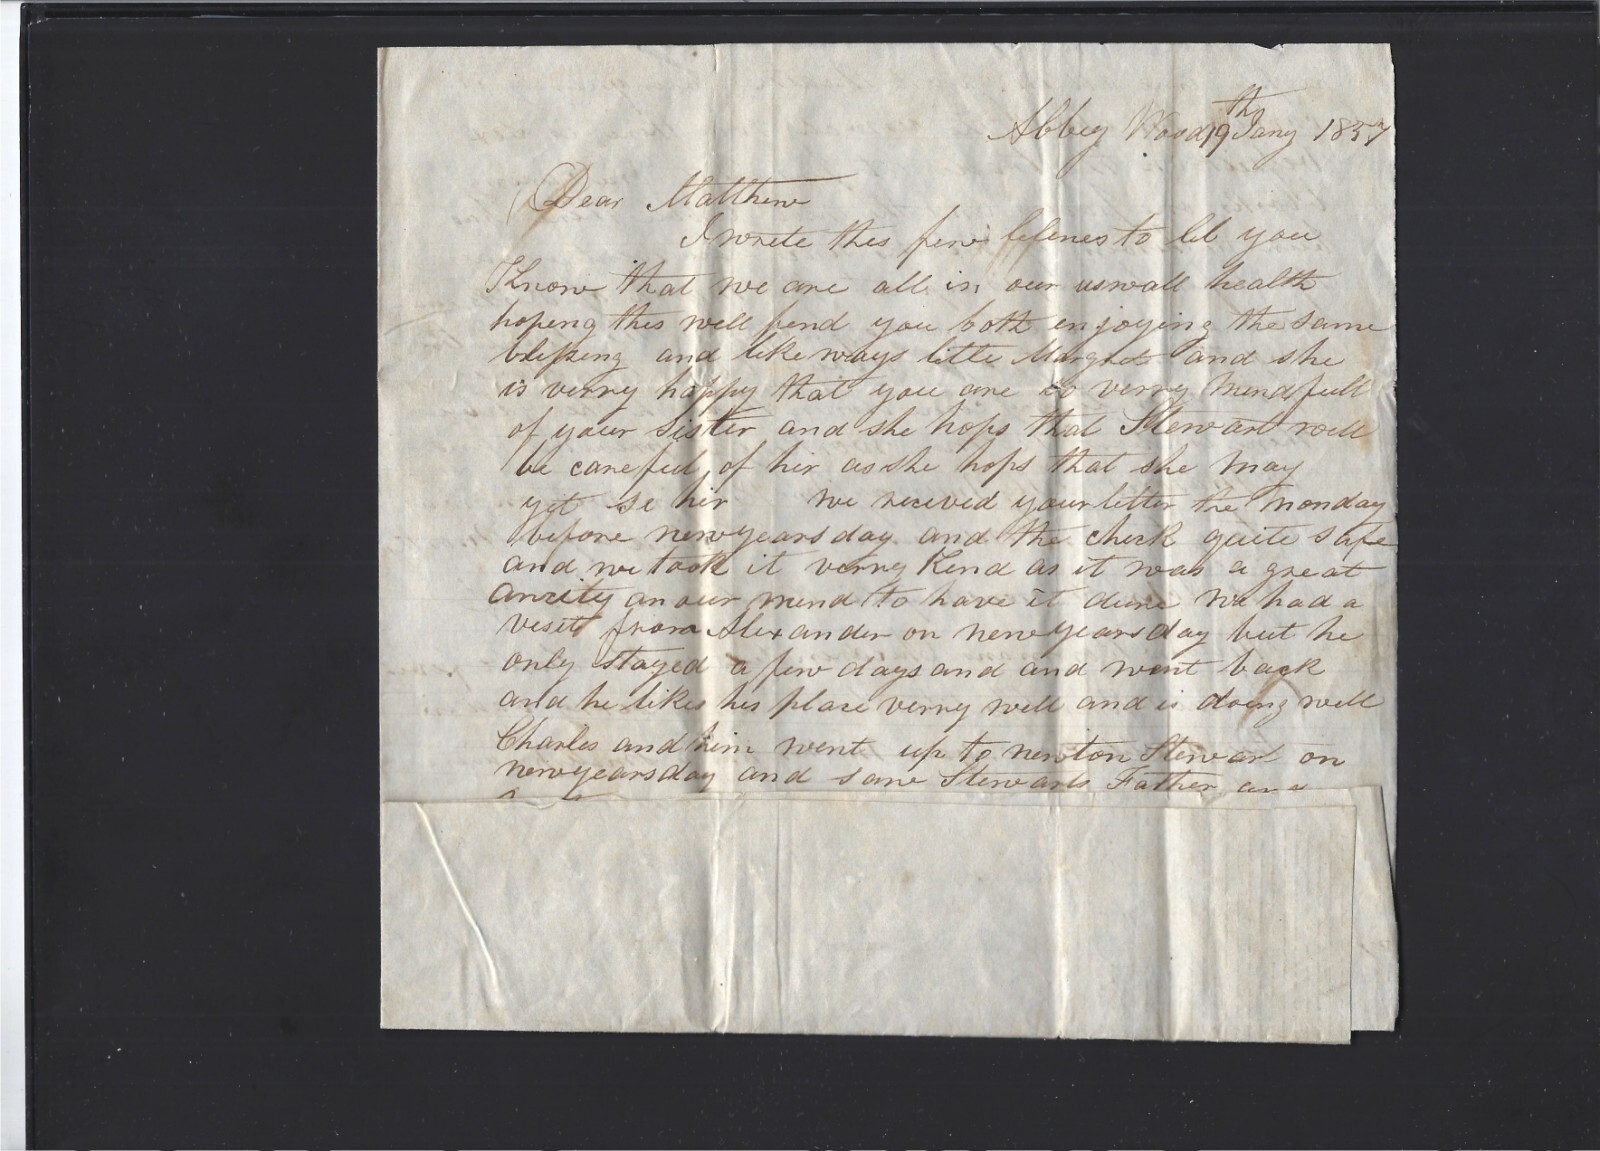 Abbey Wood 19th Jany 1857
Dear Matthew
I wrete this few to let you
Know that we are all in our uswall health
hopeng this well fend you both enjoying the same
blessing and likeways little Margret and she
is verry happy that you are so verry mendfull
of your sister and she hops that Stewart well
be careful of hir as she hops that she may
yet se hir we recived your letter the monday
before newyearsday and the check quite safe
and we took it verry Kend as it was a great
anxity on our mend to have it dune We had a
veset from Alexander on newyearsday but he
only stayed a few days and and went back
and he likes his place verry well and is doing well
Charles and him went up to newton Stewart on
newyearsday and saw Stewarts Father and